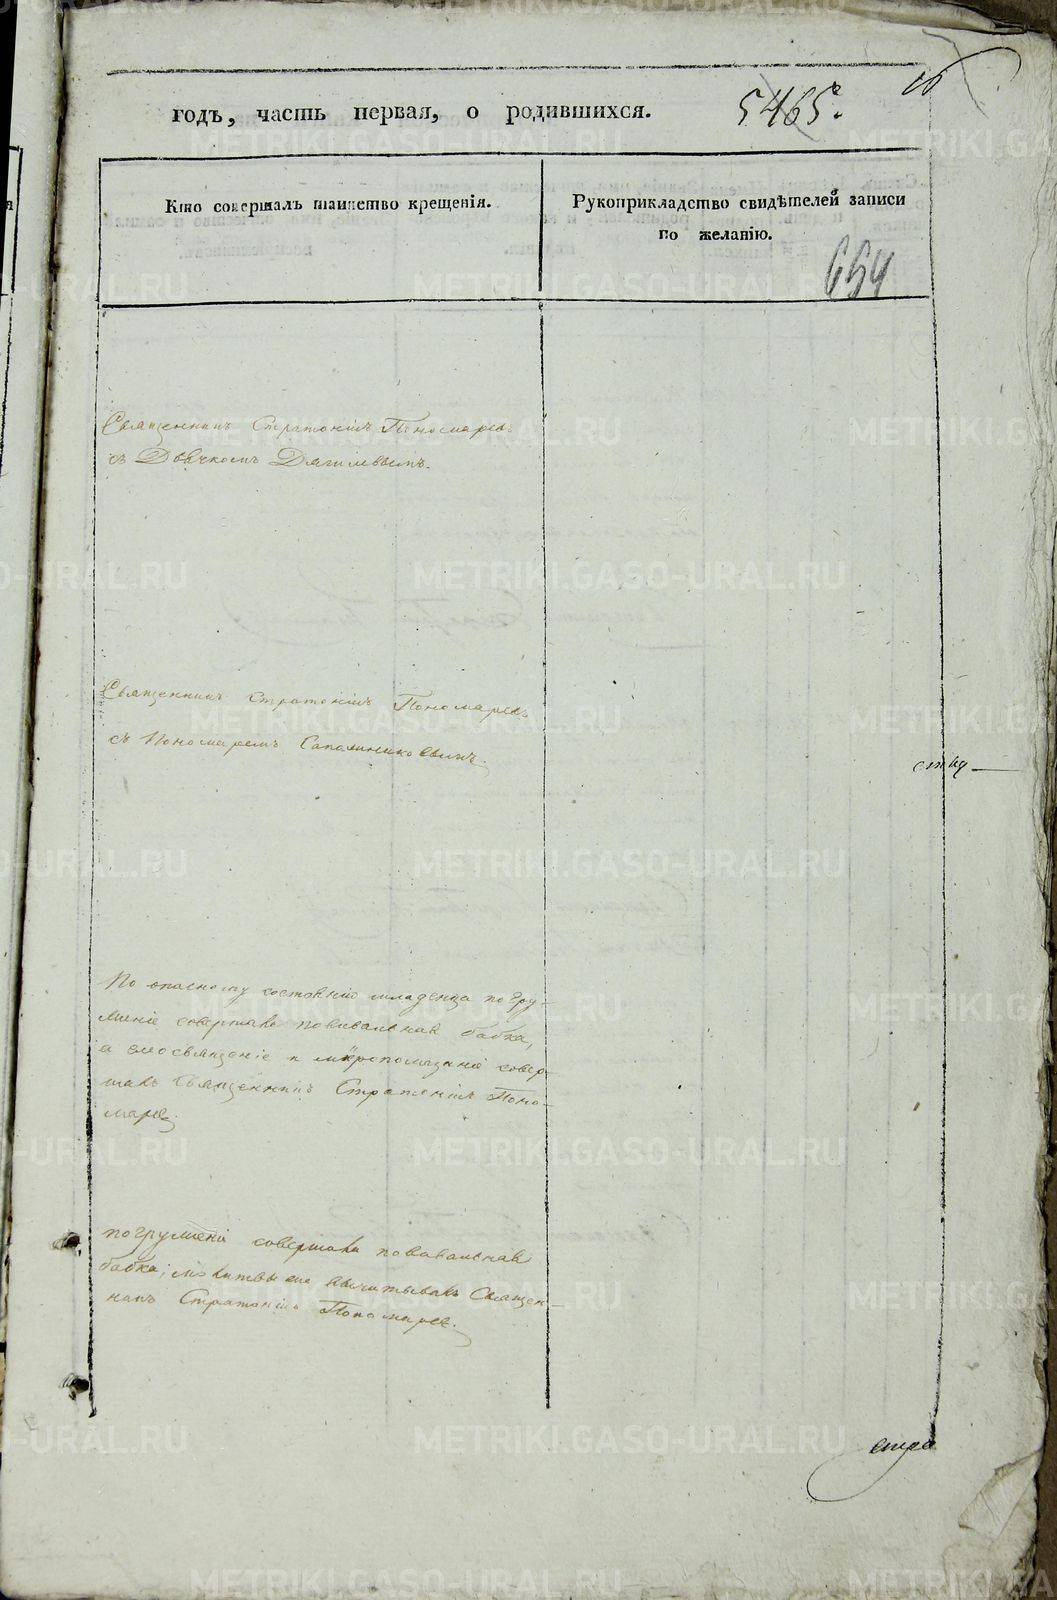 16
годъ, часть первая, о родившихся. 5465.
Кто совершалъ таинство крещенія.
Рукоприкладство свидѣтелей записи
по желанію.
654
Священникъ Стратоникъ Пономаревъ
съ Дьячкомъ Дягилевымъ.
Священникъ Стратоникъ Пономаревъ
съ Пономаремъ Сапальниковымъ.
По опасному состоянію младенца погру-
женіе совершала повивальная бабка,
а елеосвященіе и мѵропомазаніе совер-
шалъ Священникъ Стратоникъ Поно-
маревъ.
погруженіе совершала повивальная
бабка; молитвы же вычитывалъ Священ-
никъ Стратоникъ Пономаревъ.
METRIKI.GASO-URAL.RU